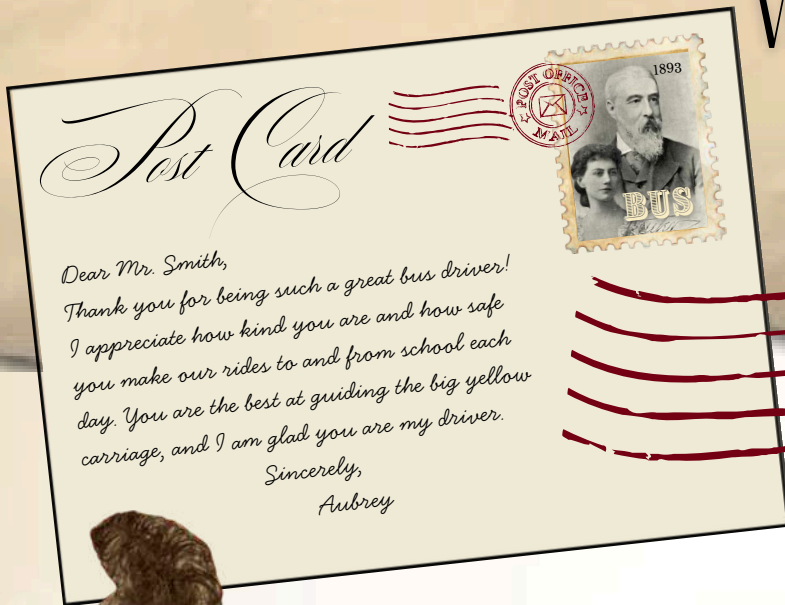 Post Card
POST OFFICE
MAIL
1893
BUS
Dear Mr. Smith,
Thank you for being such a great bus driver!
I appreciate how kind you are and how safe
you make our rides to and from school each
day. You are the best at guiding the big yellow
carriage, and I am glad you are my driver.
Sincerely,
Aubrey